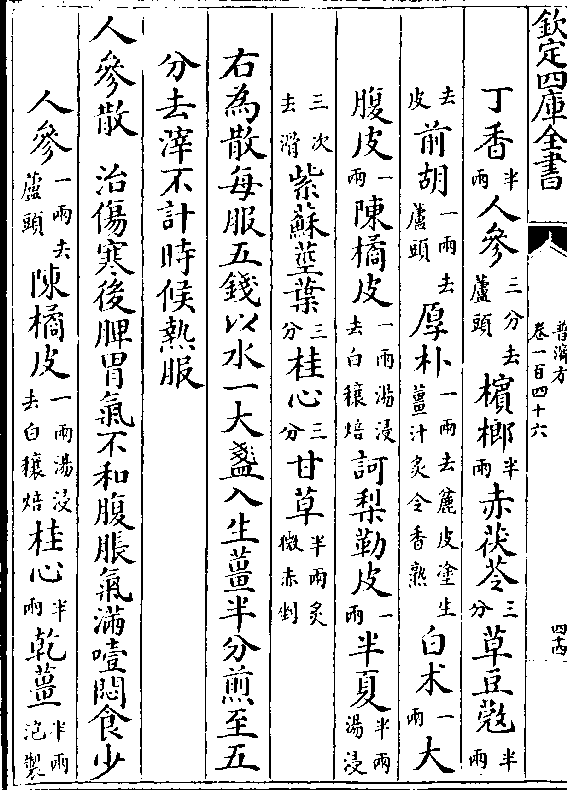 欽定四庫全書
普濟方
卷一百四十六
四十四
丁香半兩人參三分去蘆頭檳榔半兩赤茯苓三分草豆蔲半兩去皮
前胡一兩去蘆頭厚朴一兩去麄皮塗生薑汁炙令香熟白术一兩大
腹皮一兩陳橘皮一兩湯浸去白穰焙訶梨勒皮一兩半夏半兩湯浸三次去滑
紫蘇莖葉三分桂心三分甘草半兩炙微赤剉
右為散每服五錢以水一大盞入生薑半分煎至五
分去滓不計時候熱服
人參散　治傷寒後脾胃氣不和腹脹氣滿噎悶食少
人參一兩去蘆頭陳橘皮一兩湯浸去白穰焙桂心半兩乾薑半兩泡製